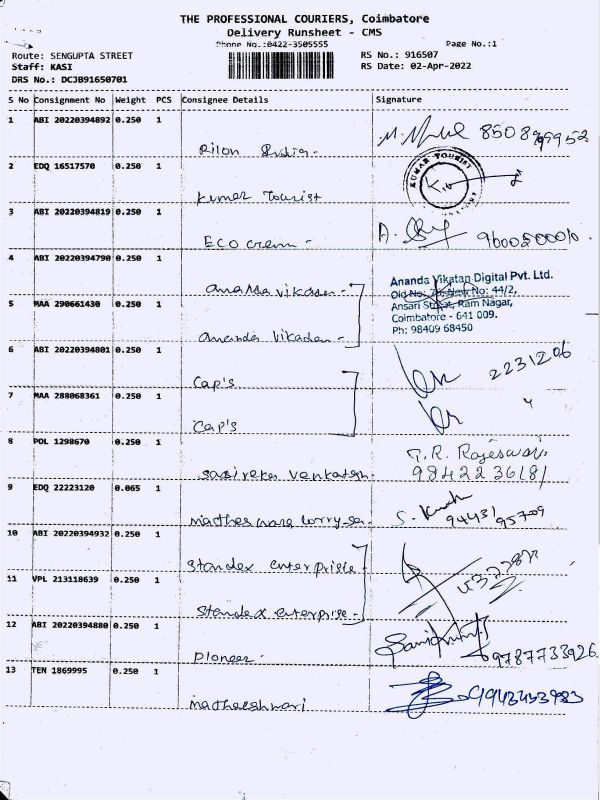 THE PROFESSIONAL COURIERS, Coimbatore
Delivery Runsheet - CMS
Phone No.:0422-3505555 Page No.:1
Route: SENGUPTA STREET RS No.: 916507
Staff: KASI RS Date: 02-Apr-2022
DRS No.: DCJB91650701
S No Consignment No Weight PCS Consignee Details Signature
1 ABI 20220394892 0.250 1
India -
2 EDQ 16517570 0.250 1
KUMAR TOURIST
Kumar Tourist
3 ABI 20220394819 0.250 1
ECO cream -
4 ABI 20220394790 0.250 1
Ananda Vikatan Digital Pvt. Ltd.
Ananda vikadan - Old No: New No: 44/2,
5 MAA 290661430 0.250 1 Ansari Street, Ram Nagar,
Coimbatore - 641 009.
Ananda Vikadan - Ph: 98409 68450
6 ABI 20220394801 0.250 1
Cap's 2231206
7 MAA 288068361 0.250 1
Cap's
8 POL 1298670 0.250 1
T.R. Rajeswari
Venkatesh - 9842236181
9 EDQ 22223120 0.065 1
94431 95709
10 ABI 20220394932 0.250 1
Standex enterprise -
11 VPL 213118639 0.250 1
Standex enterprise -
12 ABI 20220394880 0.250 1
Pioneer - 9787733926
13 TEN 1869995 0.250 1
Matheeshwari